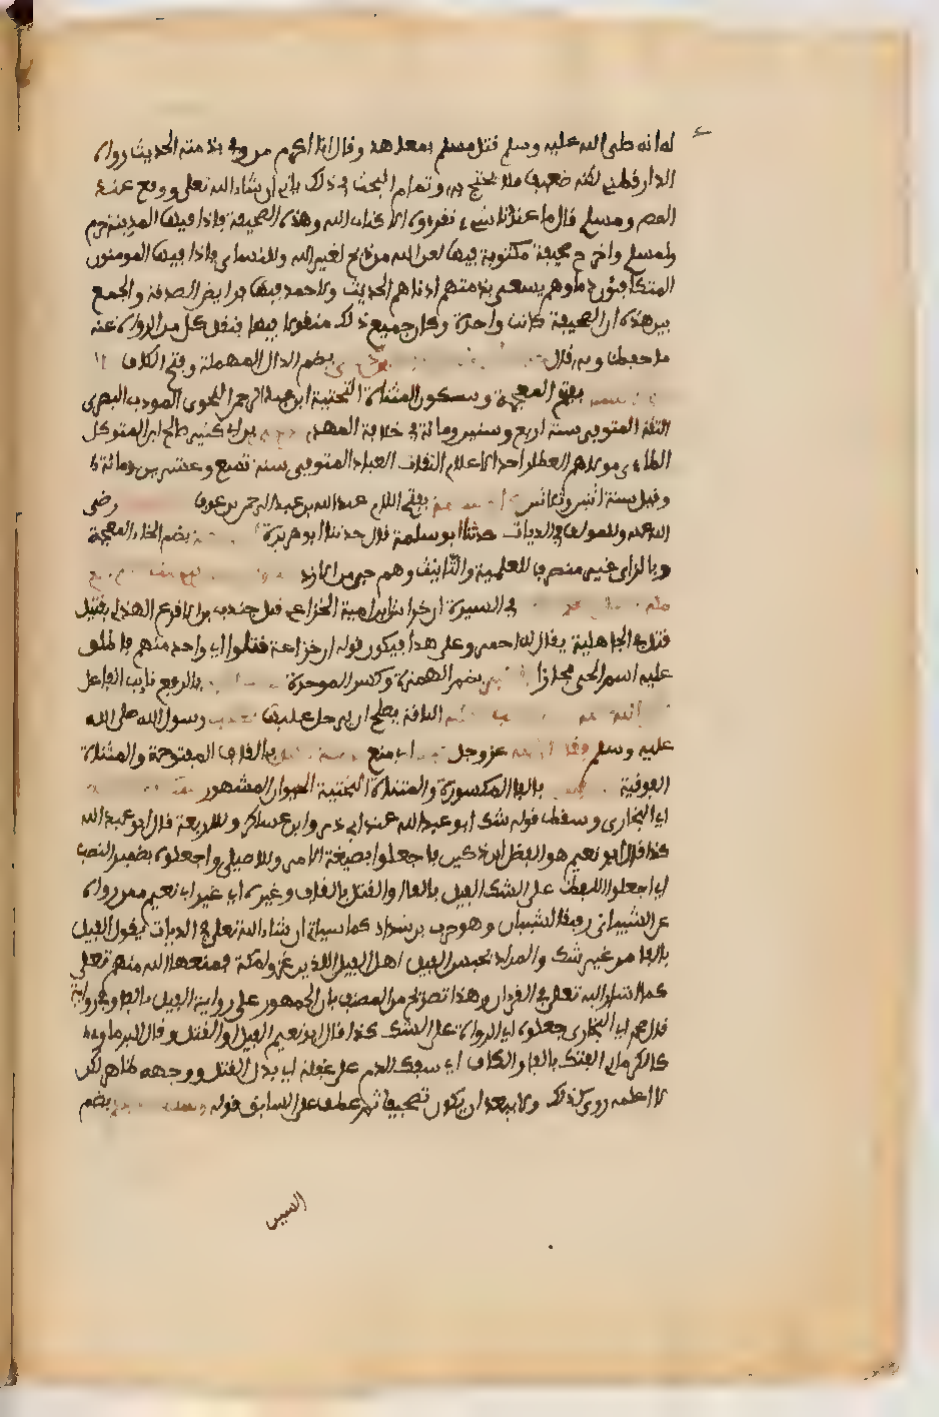 له انه صلى الله عليه وسلم قتل مسلما بمعاهد وقال انا اكرم من وفى بذمته الحديث رواه
الدارقطني لكنه ضعيف فلا يحتج به وتمام البحث في ذلك ياتي ان شاء الله تعلى ووقع عند
المص ومسلم قال ما عندنا شيء نقرؤه الا كتاب الله وهذه الصحيفة فاذا فيها المدينة حرم
ولمسلم واخرج صحيفة مكتوبة فيها لعن الله من ذبح لغير الله وللنساءي فاذا فيها المومنون
المتكافئون دماوهم يسعى بذمتهم ادناهم الحديث ولاحمد فيها فرايض الصدقة والجمع
بين هذه ان الصحيفة كانت واحدة وكان جميع ذلك منقولا فيها فنقل كل من الرواة عنه
ما حفظ وبه قال بضم الدال المهملة وفتح الكاف
بفتح المعجمة وسكون المثناة التحتية ابن عبد الرحمن النحوي المودب البصري
الثقة المتوفى سنة اربع وستين ومائة في خلافة المهدي بن ابي كثير صالح ابن المتوكل
الطاءي مولاهم العطار احد الاعلام الثقات العباد المتوفى سنة تسع وعشرين ومائة
وقيل سنة اثنين وثلاثين بفتح اللام عبد الله بن عبد الرحمن بن عوف رضي
الله عنه وللمولف في الديات حدثنا ابو سلمة قال حدثنا ابو هريرة بضم الخاء المعجمة
وبالزاي غير منصرف للعلمية والتانيث وهم حي من الازد
في السيرة ان خراش بن امية الخزاعي قتل جندب بن الاقرع الهذلي بقتيل
قتل في الجاهلية يقال له احمر وعلى هذا فيكون قوله ان خزاعة قتلوا اي واحد منهم فاطلق
عليه اسم الحي مجازا بضم الهمزة وكسر الموحدة بالرفع نايب الفاعل
الناقة يصلح ان يرحل عليها رسول الله صلى الله
عليه وسلم عز وجل اي منع بالقاف المفتوحة والمثناة
الفوقية بالفا المكسورة والمثناة التحتية الحيوان المشهور
اي البخاري وسقط قوله شك ابو عبد الله عند ابي ذر وابن عساكر وللاربعة قال ابو عبد الله
كذا قال ابو نعيم هو الفضل ابن دكين واجعلوا بصيغة الامر وللاصيلي واجعلوه بضمير النصب
اي اجعلوا اللفظ على الشك الفيل بالفاء او القتل بالقاف وغيره اي غير ابي نعيم ممن رواه
عن الشيباني رفيقا لشيبان وهو حرب بن شداد كما سياتي ان شاء الله تعلى في الديات يقول الفيل
بالفا من غير شك والمراد بحبس الفيل اهل الفيل الذين غزوا مكة فمنعها الله منهم تعلى
كما اشار اليه تعلى في القران وهذا تصريح من المصنف بان الجمهور على رواية الفيل بالفا وفي رواية
قال محمد اي البخاري جعلوه اي الرواة على الشك كذا قال ابو نعيم الفيل او القتل وقال البرماوي
كالكرماني الفتك بالفا والكاف اي سفك الدم على غفلة اي بدل القتل ووجهه ظاهر لكن
لا اعلمه روي كذلك ولا يبعد ان يكون تصحيفا ثم عطف على السابق قوله بضم
السين